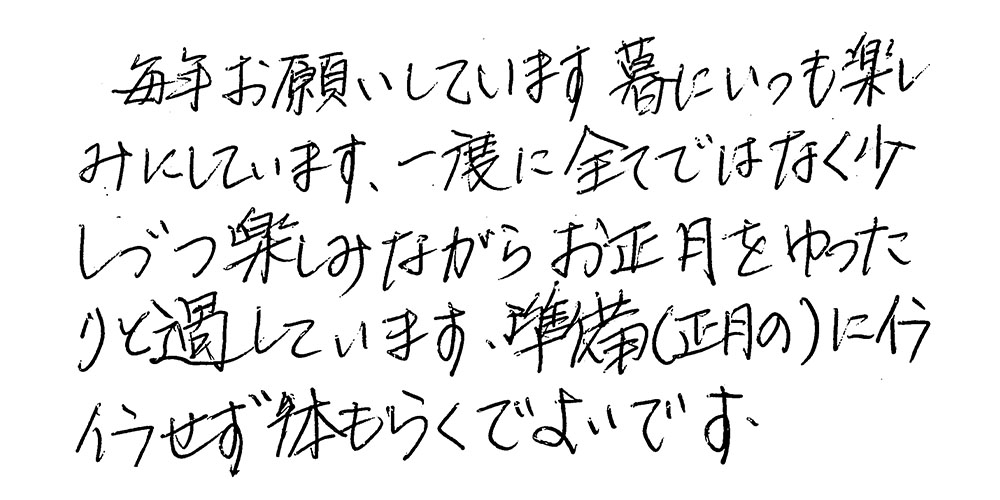 毎年お願いしています暮にいつも楽し
みにしています、一度に全てではなく少
しづつ楽しみながらお正月をゆった
りと過しています、準備(正月の)にイラ
イラせず体もらくでよいです、